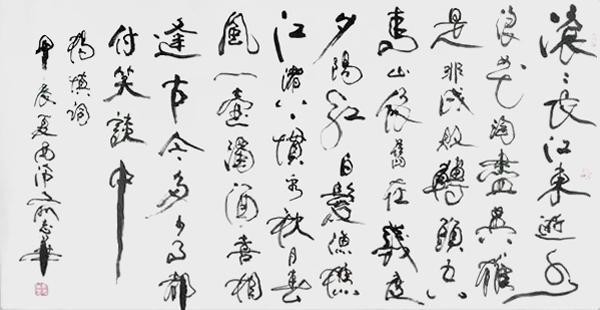 滚〻長江東逝水
浪花淘盡英雄
是非成敗轉頭空
青山依舊在幾度
夕陽紅白髮漁樵
江渚上慣看秋月春
風一壺濁酒喜相
逢古今多少事都
付笑談中
楊慎詞
甲辰夏